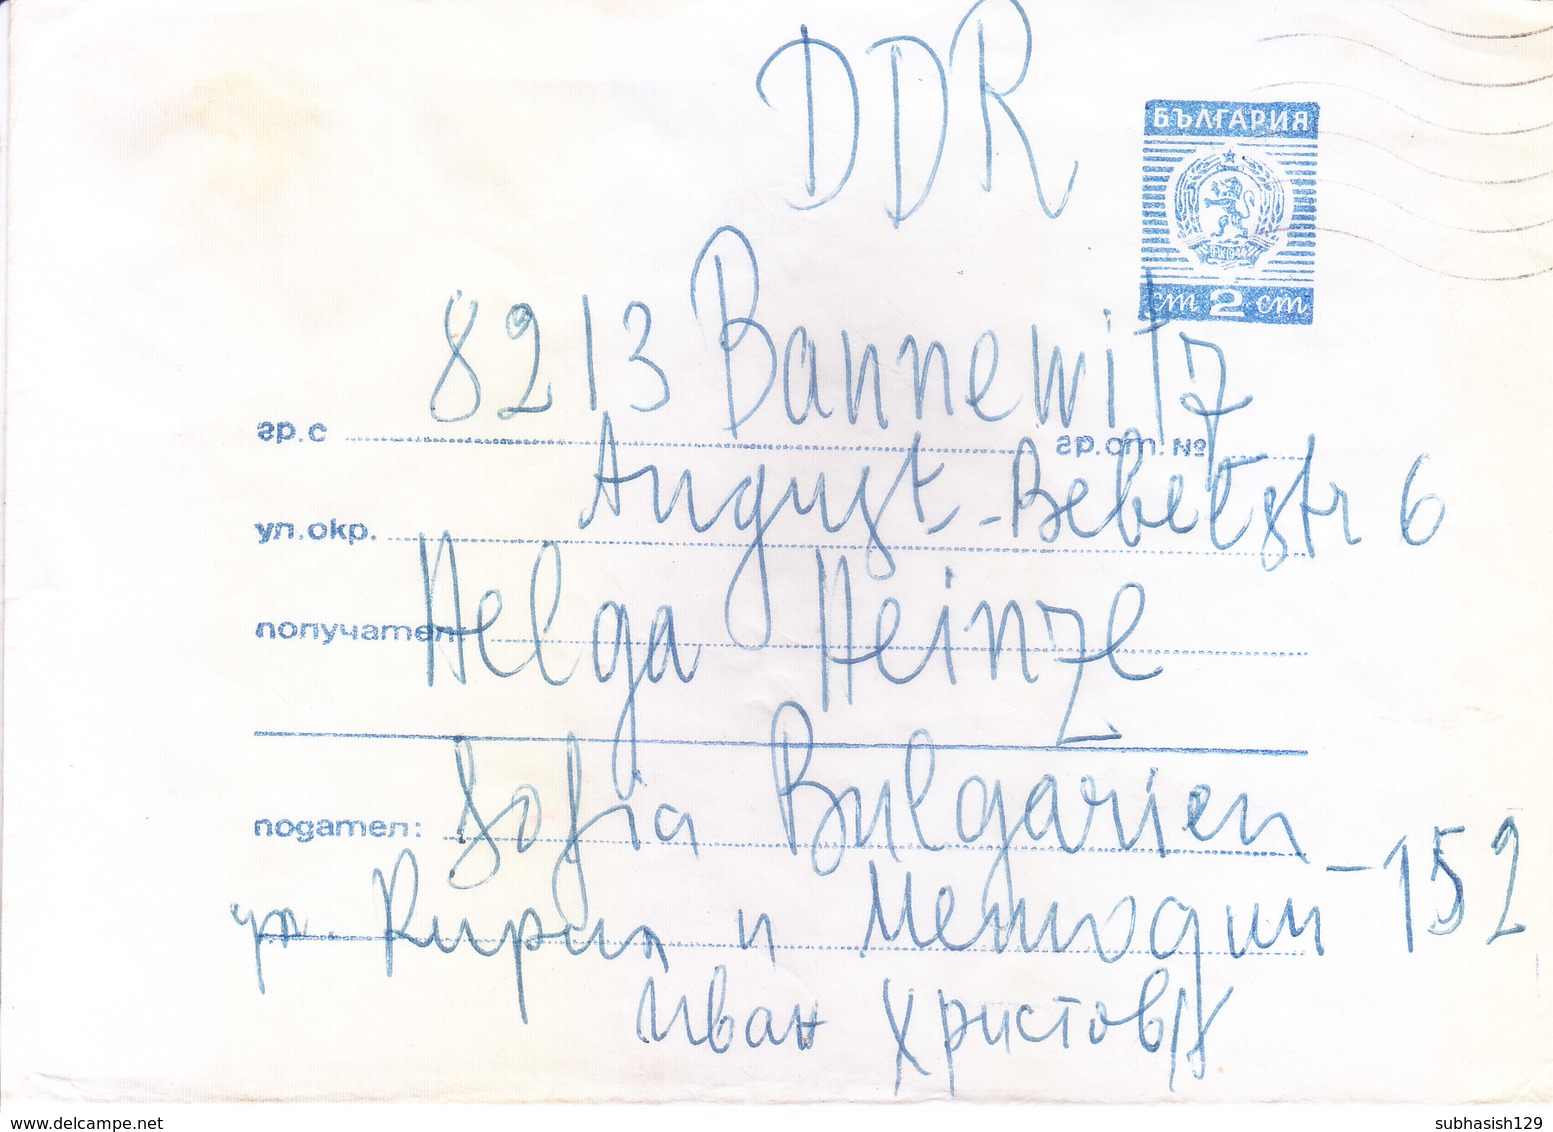 DDR
БЪЛГАРИЯ
ст 2 ст
8213 Bannewitz
гр. с гр. от. №
August-Bebelstr 6
ул. окр.
Helga Heinze
получател:
Sofia Bulgarien
подател:
ул. Кирил и Методий - 152
Иван Христов
delcampe.net
subhasish129